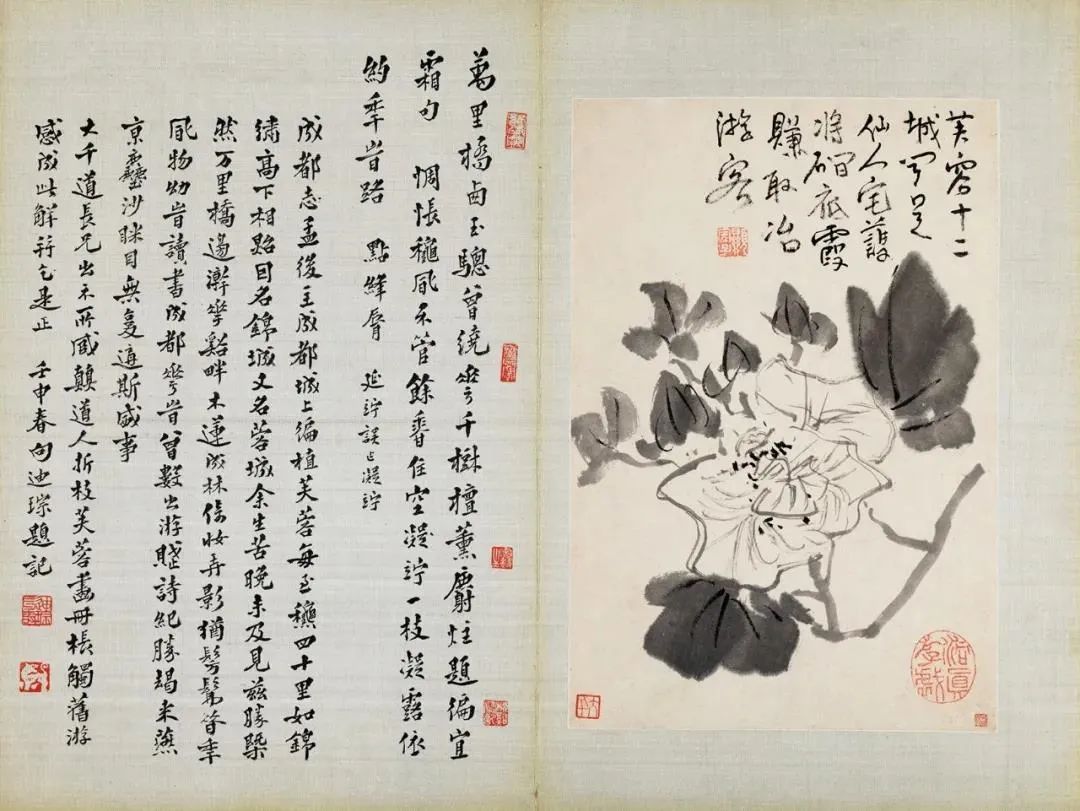 芙蓉十二
城果是
仙人宅驀
將底霞
賺取冶
游客
萬里橋西玉驄曾繞花千樹檀薰麝炷題徧宜
霜句 惆悵穐風不管餘香住空凝竚一枝凝露依
約秊時路 點絳脣 延竚誤占凝竚
成都志孟後主成都城上徧植芙蓉每至穐四十里如錦
繡高下相照因名錦城又名蓉城余生苦晚未及見茲勝槩
然万里橋邊澣花谿畔木蓮成林倚妝弄影猶髣髴當秊
風物幼時讀書成都花時曾數出游賦詩紀勝朅来燕
京塵沙眯目無复斯盛事
大千道長兄出示所臧顛道人折枝芙蓉畫冊棖觸舊游
感成此解并乞是正 壬申春向迪琮題記